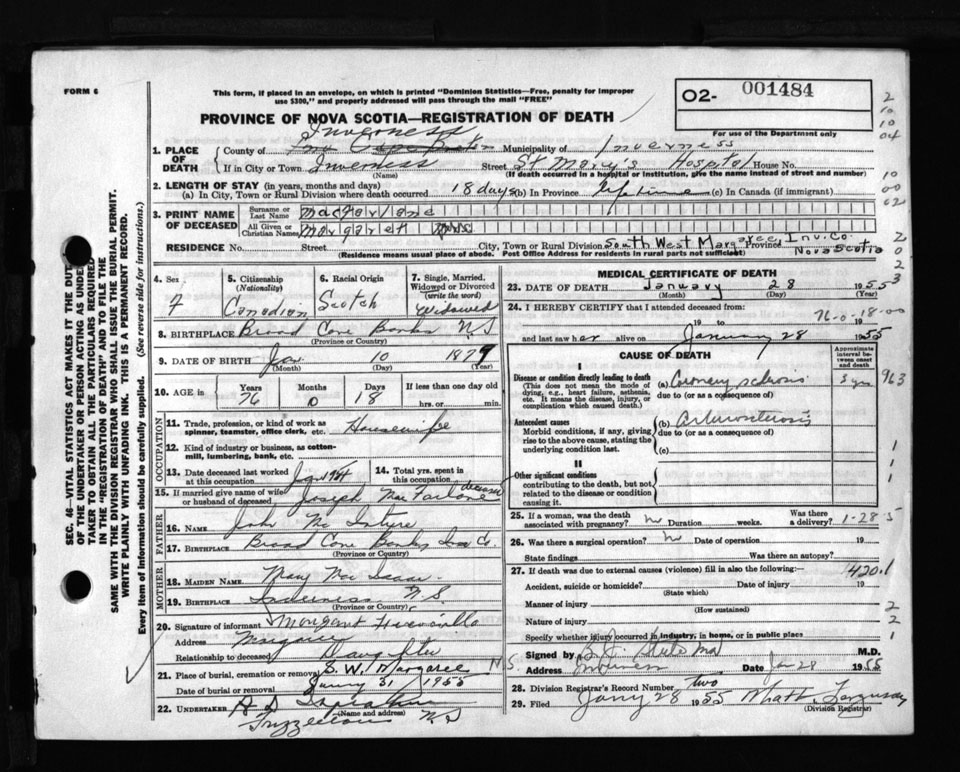 FORM 6
This form, if placed in an envelope, on which is printed "Dominion Statistics—Free, penalty for improper
use $300," and properly addressed will pass through the mail "FREE"
02- 001484
PROVINCE OF NOVA SCOTIA—REGISTRATION OF DEATH
For use of the Department only
2
10
10
04
Inverness
1. PLACE OF DEATH
County of Cape Breton Municipality of Inverness
If in City or Town Inverness Street St Mary's Hospital House No.
(Name) (If death occurred in a hospital or institution, give name instead of street and number)
10
00
02
2. LENGTH OF STAY (in years, months and days)
(a) In City, Town or Rural Division where death occurred 18 days (b) In Province Lifetime (c) In Canada (if immigrant)
3. PRINT NAME OF DECEASED
Surname or Last Name MacFarlane
All Given or Christian Names Margaret
RESIDENCE No. Street City, Town or Rural Division South West Margaree Inv. Co. Province Nova Scotia
(Residence means usual place of abode. Post Office Address for residents in rural parts not sufficient)
2
0
2
3
SEC. 46—VITAL STATISTICS ACT MAKES IT THE DUTY
OF THE UNDERTAKER OR PERSON ACTING AS UNDER-
TAKER TO OBTAIN ALL THE PARTICULARS REQUIRED
IN THE "REGISTRATION OF DEATH" AND TO FILE THE
SAME WITH THE DIVISION REGISTRAR WHO SHALL ISSUE THE BURIAL PERMIT.
WRITE PLAINLY WITH UNFADING INK. THIS IS A PERMANENT RECORD.
Every item of information should be carefully supplied. (See reverse side for instructions.)
4. Sex F
5. Citizenship (Nationality) Canadian
6. Racial Origin Scotch
7. Single, Married, Widowed or Divorced (write the word) Widowed
8. BIRTHPLACE Broad Cove Banks N.S.
(Province or Country)
9. DATE OF BIRTH Jan 10 1879
(Month) (Day) (Year)
10. AGE in Years 76 Months 0 Days 18 If less than one day old hrs. or min.
OCCUPATION
11. Trade, profession, or kind of work as spinner, teamster, office clerk, etc. Housewife
12. Kind of industry or business, as cotton-mill, lumbering, bank, etc.
13. Date deceased last worked at this occupation Jan 1954
14. Total yrs. spent in this occupation
15. If married give name of wife or husband of deceased Joseph MacFarlane deceased
FATHER
16. NAME John McIntyre
17. BIRTHPLACE Broad Cove Banks Inv Co.
(Province or Country)
MOTHER
18. MAIDEN NAME Mary MacIsaac
19. BIRTHPLACE Inverness N.S.
(Province or Country)
20. Signature of informant Margaret
Address Margaree
Relationship to deceased Daughter
21. Place of burial, cremation or removal S.W. Margaree N.S.
Date of burial or removal 31/1955
22. UNDERTAKER
(Name and address)
N S
MEDICAL CERTIFICATE OF DEATH
23. DATE OF DEATH January 28 1955
(Month) (Day) (Year)
24. I HEREBY CERTIFY that I attended deceased from:
76-0-18-00
19 to 19
and last saw her alive on January 28 1955
CAUSE OF DEATH
Approximate interval between onset and death
I
Disease or condition directly leading to death
(This does not mean the mode of dying, e.g., heart failure, asthenia, etc. It means the disease, injury, or complication which caused death.)
(a) Coronary sclerosis 3 yrs 963
due to (or as a consequence of)
Antecedent causes
Morbid conditions, if any, giving rise to the above cause, stating the underlying condition last.
(b) Arteriosclerosis
due to (or as a consequence of)
(c)
1
1
1
II
Other significant conditions
contributing to the death, but not related to the disease or condition causing it.
25. If a woman, was the death associated with pregnancy? no Duration weeks. Was there a delivery? 1-28-5
26. Was there a surgical operation? no Date of operation 19
State findings Was there an autopsy?
27. If death was due to external causes (violence) fill in also the following:—
420.1
Accident, suicide or homicide? Date of injury 19
(State which)
Manner of injury
(How sustained)
2
Nature of injury
2
Specify whether injury occurred in industry, in home, or in public place
1
Signed by M.D.
Address Inverness Date Jan 28 1955
28. Division Registrar's Record Number two
29. Filed 28 1955
(Division Registrar)